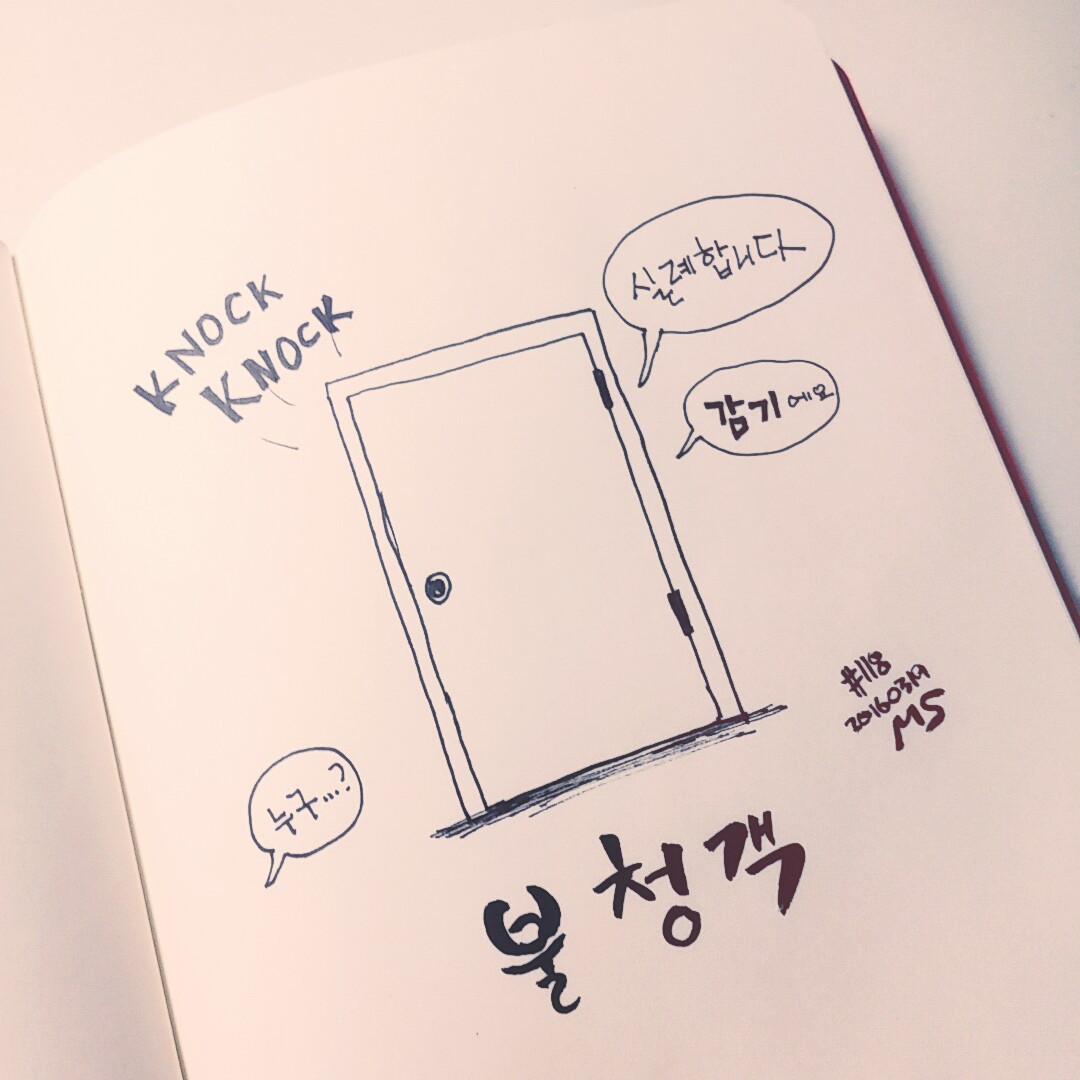 KNOCK
KNOCK
실례합니다
감기에요
누구....?
#118
20160319
MS
불청객